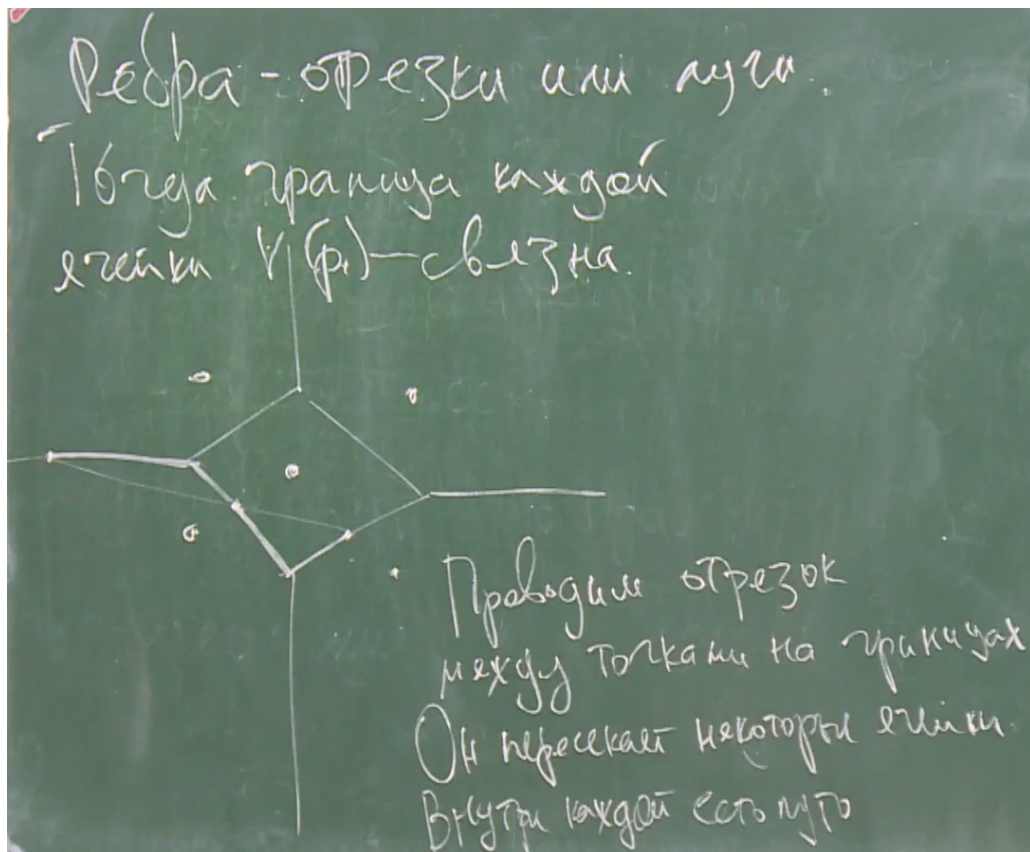 Ребра - отрезки или лучи.
Тогда граница каждой
ячейки V(pᵢ) - связна.
Проводим отрезок
между точками на границах
Он пересекает некоторые ячейки.
Внутри каждой есть путь